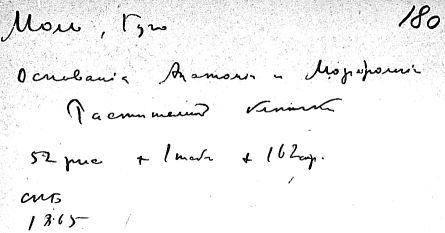 180
Моль, Гуго
Основанія Анатоміи и Морфологіи
Растительной клетки
52 рис + 1 табл + 162 стр.
СПБ
1865